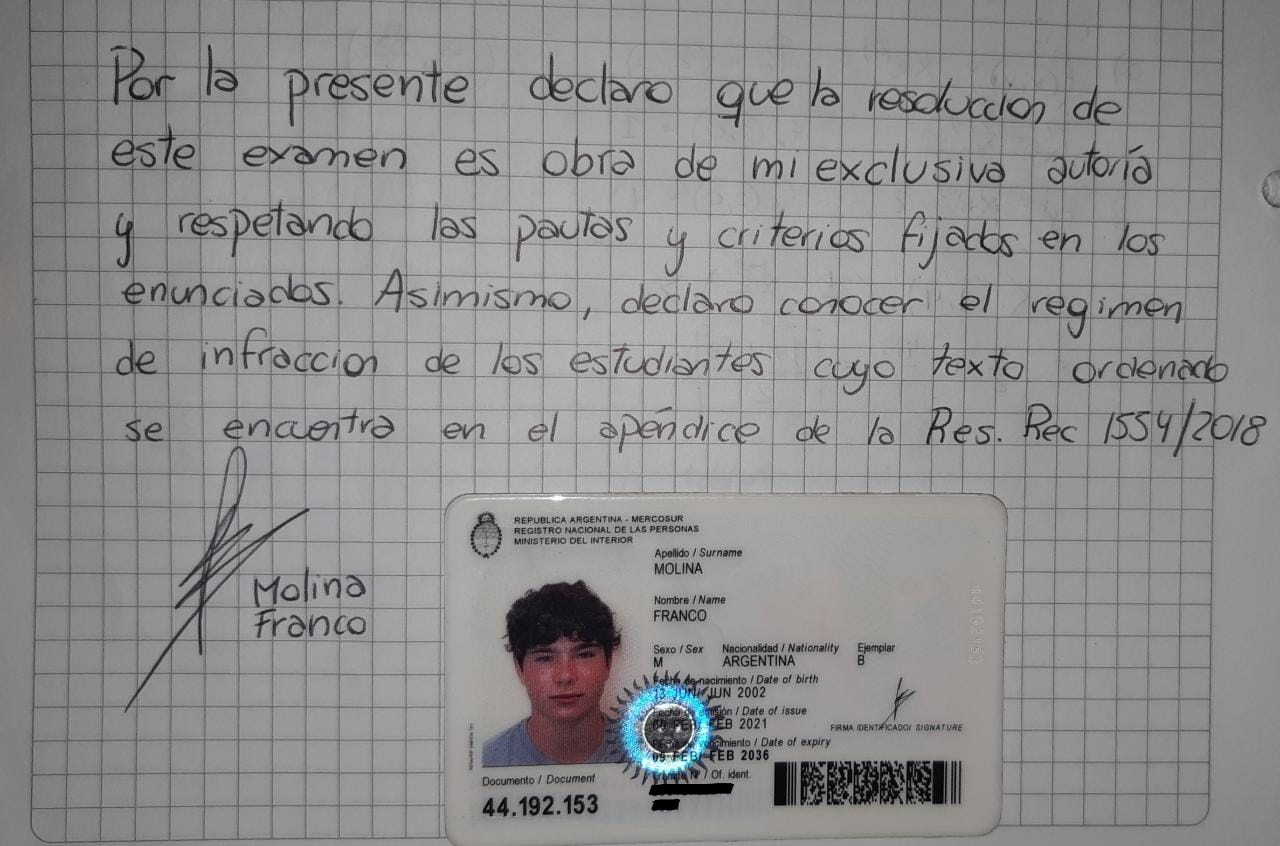 Por la presente declaro que la resoluccion de
este examen es obra de mi exclusiva autoría
y respetando las pautas y criterios fijados en los
enunciados. Asimismo, declaro conocer el regimen
de infraccion de los estudiantes cuyo texto ordenado
se encuentra en el apéndice de la Res. Rec 1554/2018
Molina
Franco
REPUBLICA ARGENTINA - MERCOSUR
REGISTRO NACIONAL DE LAS PERSONAS
MINISTERIO DEL INTERIOR
Apellido / Surname
MOLINA
Nombre / Name
FRANCO
Sexo / Sex Nacionalidad / Nationality Ejemplar
M ARGENTINA B
Fecha de nacimiento / Date of birth
JUN/ JUN 2002
/ Date of issue
FEB 2021
FIRMA IDENTIFICADO/ SIGNATURE
/ Date of expiry
09 FEB/ FEB 2036
/ Of. ident.
Documento / Document
44.192.153